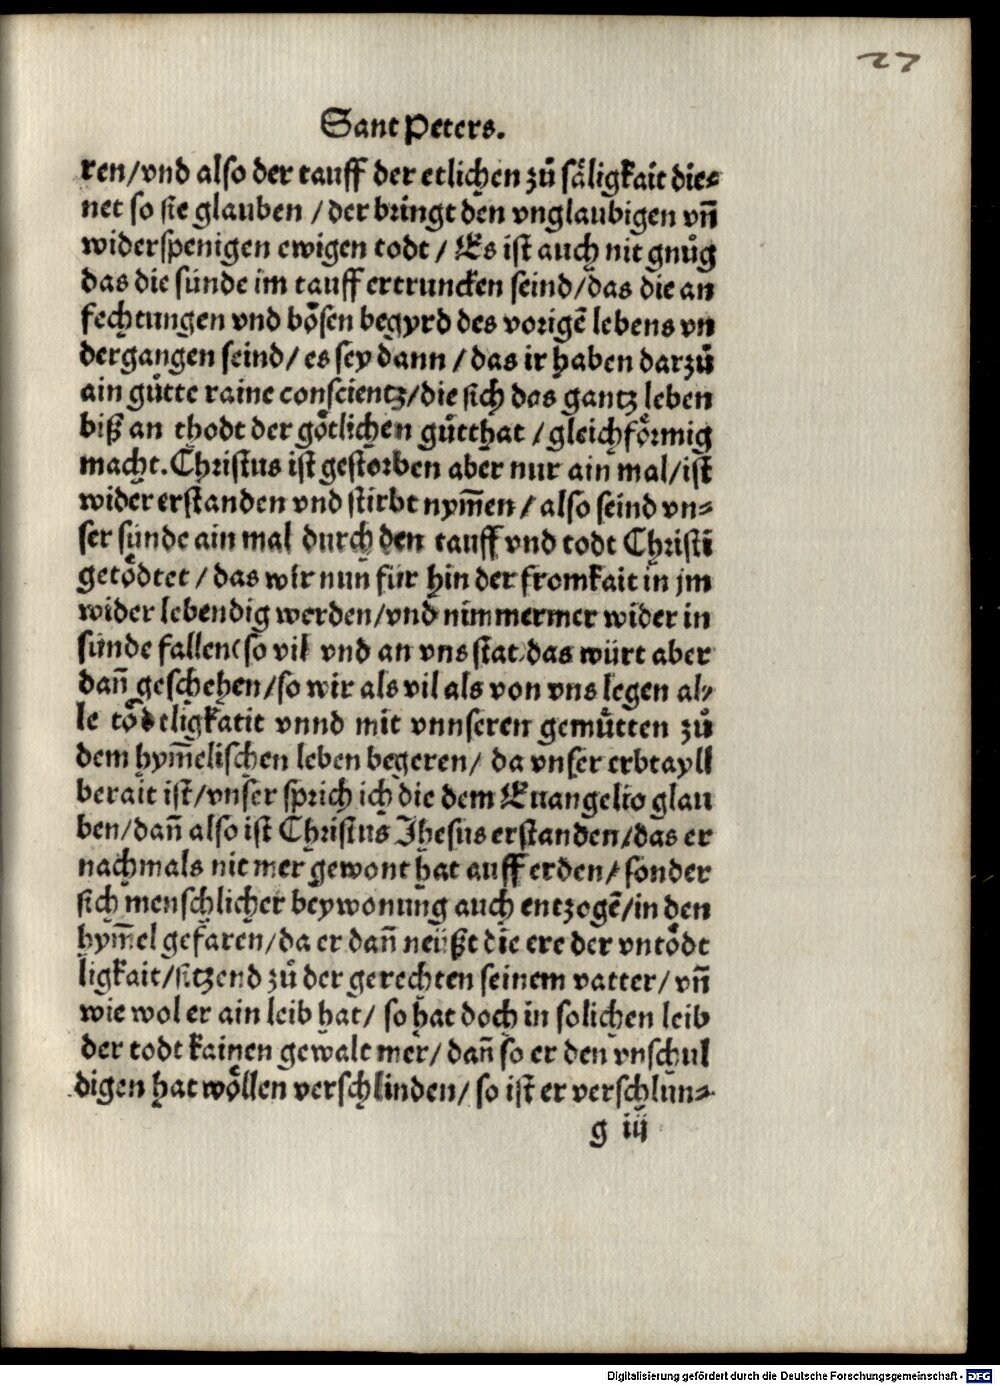 27
Sant Peters.
ren/vnd also der tauff der etlichen zů säligkait die⸗
net so sie glauben / der bringt den vnglaubigen vñ
widerspenigen ewigen todt / Es ist auch nit gnůg
das die sünde im tauff ertruncken seind/das die an
fechtungen vnd bösen begyrd des vorigē lebens vn
dergangen seind/ es sey dann / das ir haben darzů
ain gůtte raine conscientz/die sich das gantz leben
biß an thodt der götlichen gůtthat / gleichförmig
macht. Christus ist gestorben aber nur ain mal/ist
wider erstanden vnd stirbt nym̄en / also seind vn⸗
ser sünde ain mal durch den tauff vnd todt Christi
getödtet / das wir nun für hin der fromkait in jm
wider lebendig werden/vnd nimmermer wider in
sünde fallen(so vil vnd an vns stat)das würt aber
dañ geschehen/so wir als vil als von vns legen al⸗
le tödtligkatit vnnd mit vnnseren gemütten zů
dem hym̄elischen leben begeren/ da vnser erbtayll
berait ist/vnser sprich ich die dem Euangelio glau
ben/dañ also ist Christus Jhesus erstanden/das er
nachmals nit mer gewont hat auff erden/ sonder
sich menschlicher beywonung auch entzogē/in den
hym̄el gefaren/da er dañ neüßt die ere der vntödt
ligkait/sitzend zů der gerechten seinem vatter/ vñ
wie wol er ain leib hat/ so hat doch in solichen leib
der todt kainen gewalt mer/ dañ so er den vnschul
digen hat wöllen verschlinden/ so ist er verschlun⸗
g iij
Digitalisierung gefördert durch die Deutsche Forschungsgemeinschaft - DFG